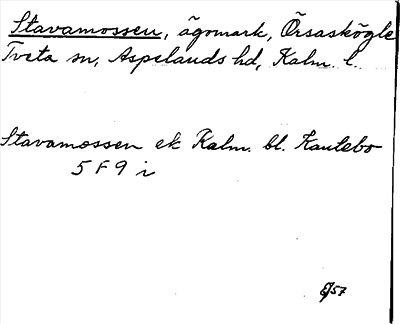 Stavamossen, ägomark, Örsaskögle
Tveta sn, Aspelands hd, Kalm. l.
Stavamossen ek Kalm. bl. Kantebo
5 F 9 i
57